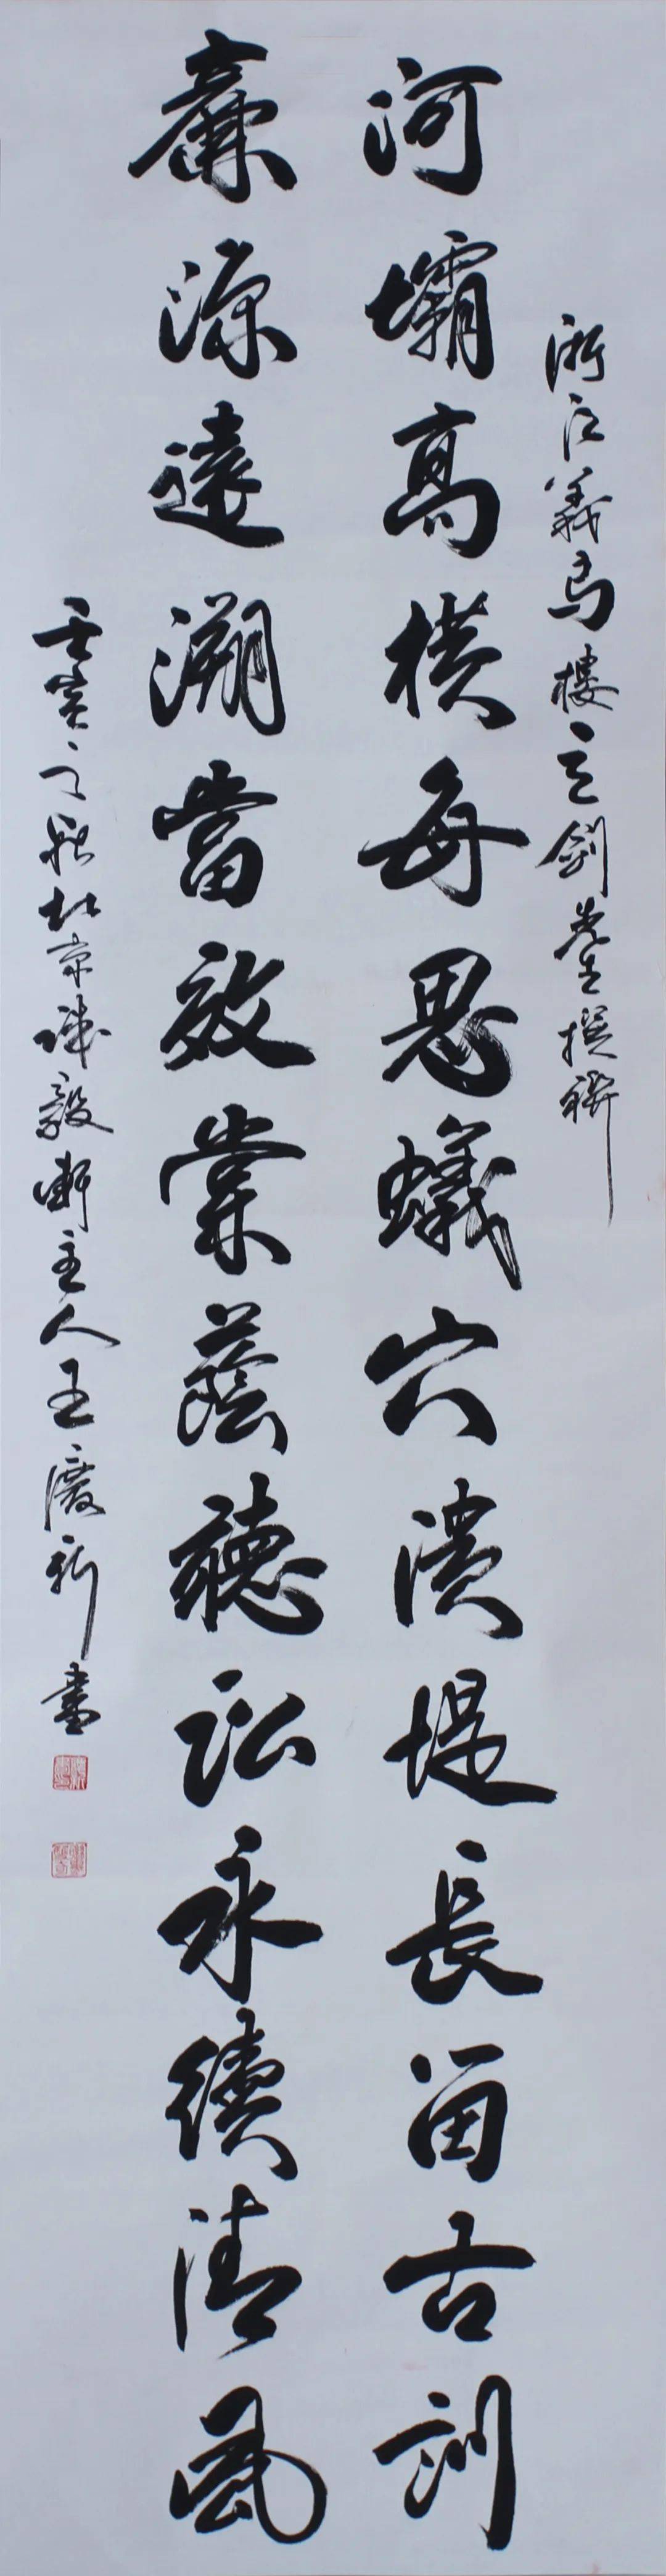 浙江義烏樓立劍先生撰聯
河壩高橫每思蟻穴潰堤長留古訓
廉源遠溯當效棠蔭聽訟永續清風
壬寅之秋北京誠毅軒主人王新書